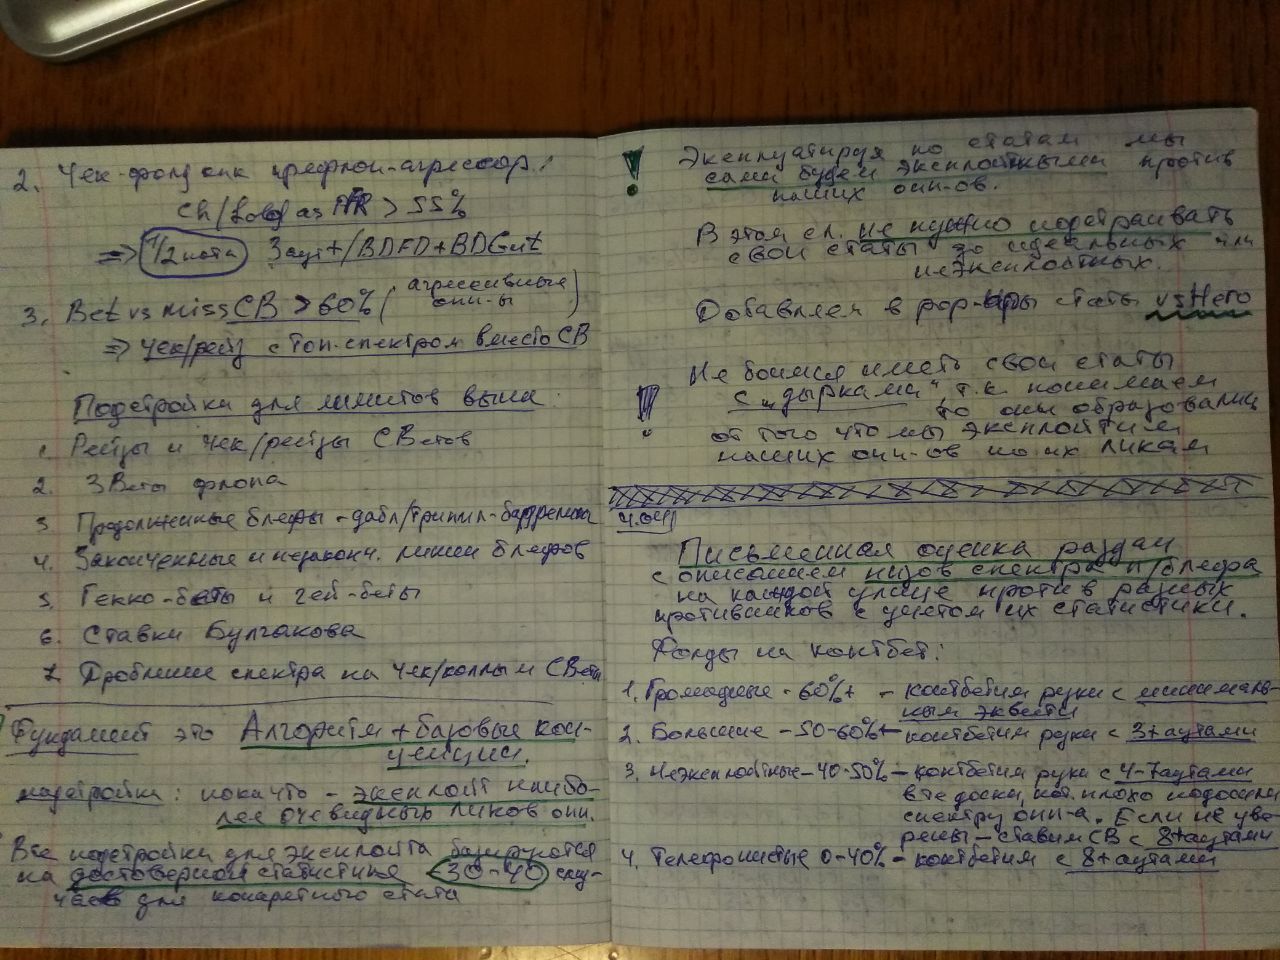 2. Чек-фолд как префлоп-агрессор:
Ch/fold as PFR > 55%
=> 1/2 пота 3аут+/BDFD+BDGut
3. Bet vs miss CB > 60% (агрессивные
опп-ы)
=> Чек/рейз с топ.спектром вместо CB
Подстройка для лимитов выше:
1. Рейзы и чек/рейзы CBетов
2. 3Bеты флопа
3. Продолженные блефы - дабл/трипл-баррелинг
4. Законченные и незаконч. линии блефов
5. Гекко-беты и гей-беты
6. Ставки Булгакова
7. Дробление спектра на чек/коллы и CBеты
Фундамент это Алгоритм + базовые кон-
цепции.
надстройки: пока что - эксплойт наибо-
лее очевидных ликов опп.
Все подстройки для эксплойта базируются
на достоверной статистике 30-40 слу-
чаев для конкретного стата
! Эксплуатируя по статам мы
сами будем эксплойтными против
наших опп-ов.
В этом сл. не нужно подстраивать
свои статы до идеальных или
неэксплойтных.
Добавляем в pop-upы статы vs Hero
! Не боимся иметь свои статы
с „дырками“, т.к. понимаем
то они образовались
от того что мы эксплойтим
наших опп-ов по их ликам
Письменная оценка раздач
с описанием низов спектра п/блефа
на каждой улице против разных
противников с учетом их статистики.
Фолды на контбет:
1. Громадные - 60%+ - контбетим руки с минималь-
ным эквети
2. Большие - 50-60% - контбетим руки с 3+аутами
3. Неэксплойтные - 40-50% - контбетим руки с 4-7аутами
в те доски, кот. плохо подошли
спектру опп-а. Если не уве-
рены - ставим CB с 8+аутами
4. Телефонистые 0-40% - контбетим с 8+аутами